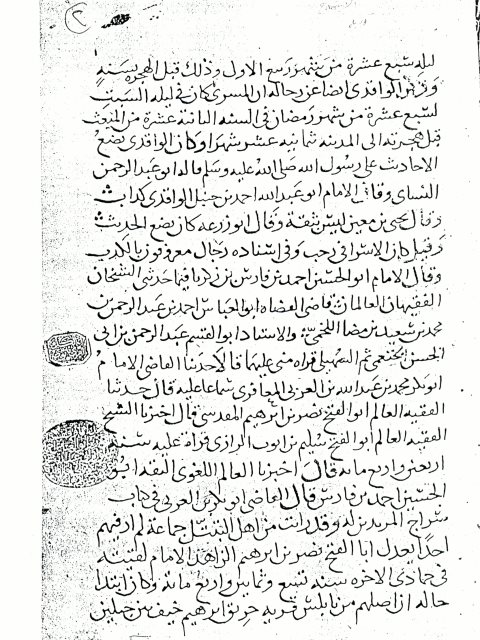 ٢
ليله سبع عشرة من شهر ربيع الاول وذلك قبل الهجرة بسنة
وذكر الواقدي ايضا عن رجاله ان المسرى كان في ليلة السبت
لسبع عشرة من شهر رمضان في السنه الثانية عشرة من المبعث
قبل هجرته الى المدينه ثمانيه عشر شهرا وكان الواقدي يضع
الاحاديث على رسول الله صلى الله عليه وسلم قاله ابو عبد الرحمن
النساي وقال الامام ابو عبد الله احمد بن حنبل الواقدي كذاب
وقال يحيى بن معين ليس بثقة وقال ابو زرعه كان يضع الحديث
وقيل كان الاسرا في رجب وفي اسناده رجال معروفون بالكذب
وقال الامام ابو الحسين احمد بن فارس بن زكريا فيما حدثني الشيخان
الفقيهان العالمان قاضي القضاه ابو العباس احمد بن عبد الرحمن بن
محمد بن سعيد بن مضا اللخمي والاستاذ ابو القسم عبد الرحمن بن ابي
الحسن الخثعمي ثم السهيلي قراه مني عليهما قالا حدثنا القاضي الامام
ابو بكر محمد بن عبد الله بن العربي المعافري سماعا عليه قال حدثنا
الفقيه العالم ابو الفتح نصر بن ابرهيم المقدسي قال اخبرنا الشيخ
الفقيه العالم ابو الفتح سليم بن ايوب الرازي قراة عليه سنة
اربعين واربع مائه قال اخبرنا العالم اللغوي الفقيه ابو
الحسين احمد بن فارس قال القاضي ابو بكر بن العربي في كتاب
سراج المريدين له وقد رايت من اهل التبتل جماعة لم ار فيهم
احدا يعدل ابا الفتح نصر بن ابرهيم الزاهد الامام لقيته
في جمادى الاخره سنه تسع وثمانين واربع مائة وكان ابتدا
حاله ان اصلهم من نابلس قريه حريق ابرهيم خيف بين جبلين